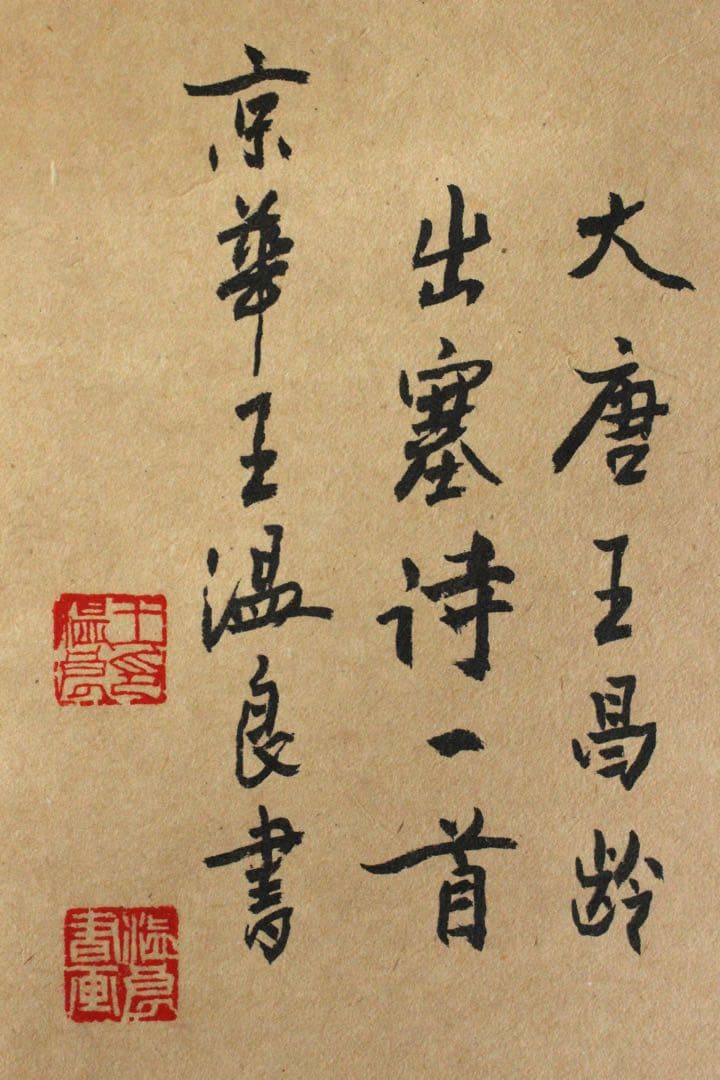 大唐王昌龄
出塞诗一首
京華王温良書
王温良印
温良書画